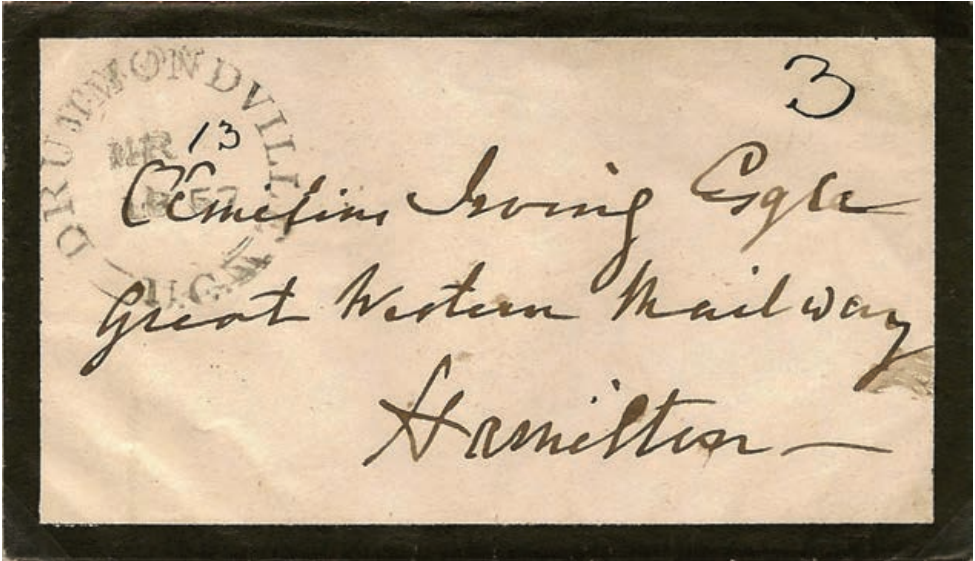 3
DRUMMONDVILLE
MR 13
1857
U.C.
Æmilius Irving Esqre
Great Western Railway
Hamilton —